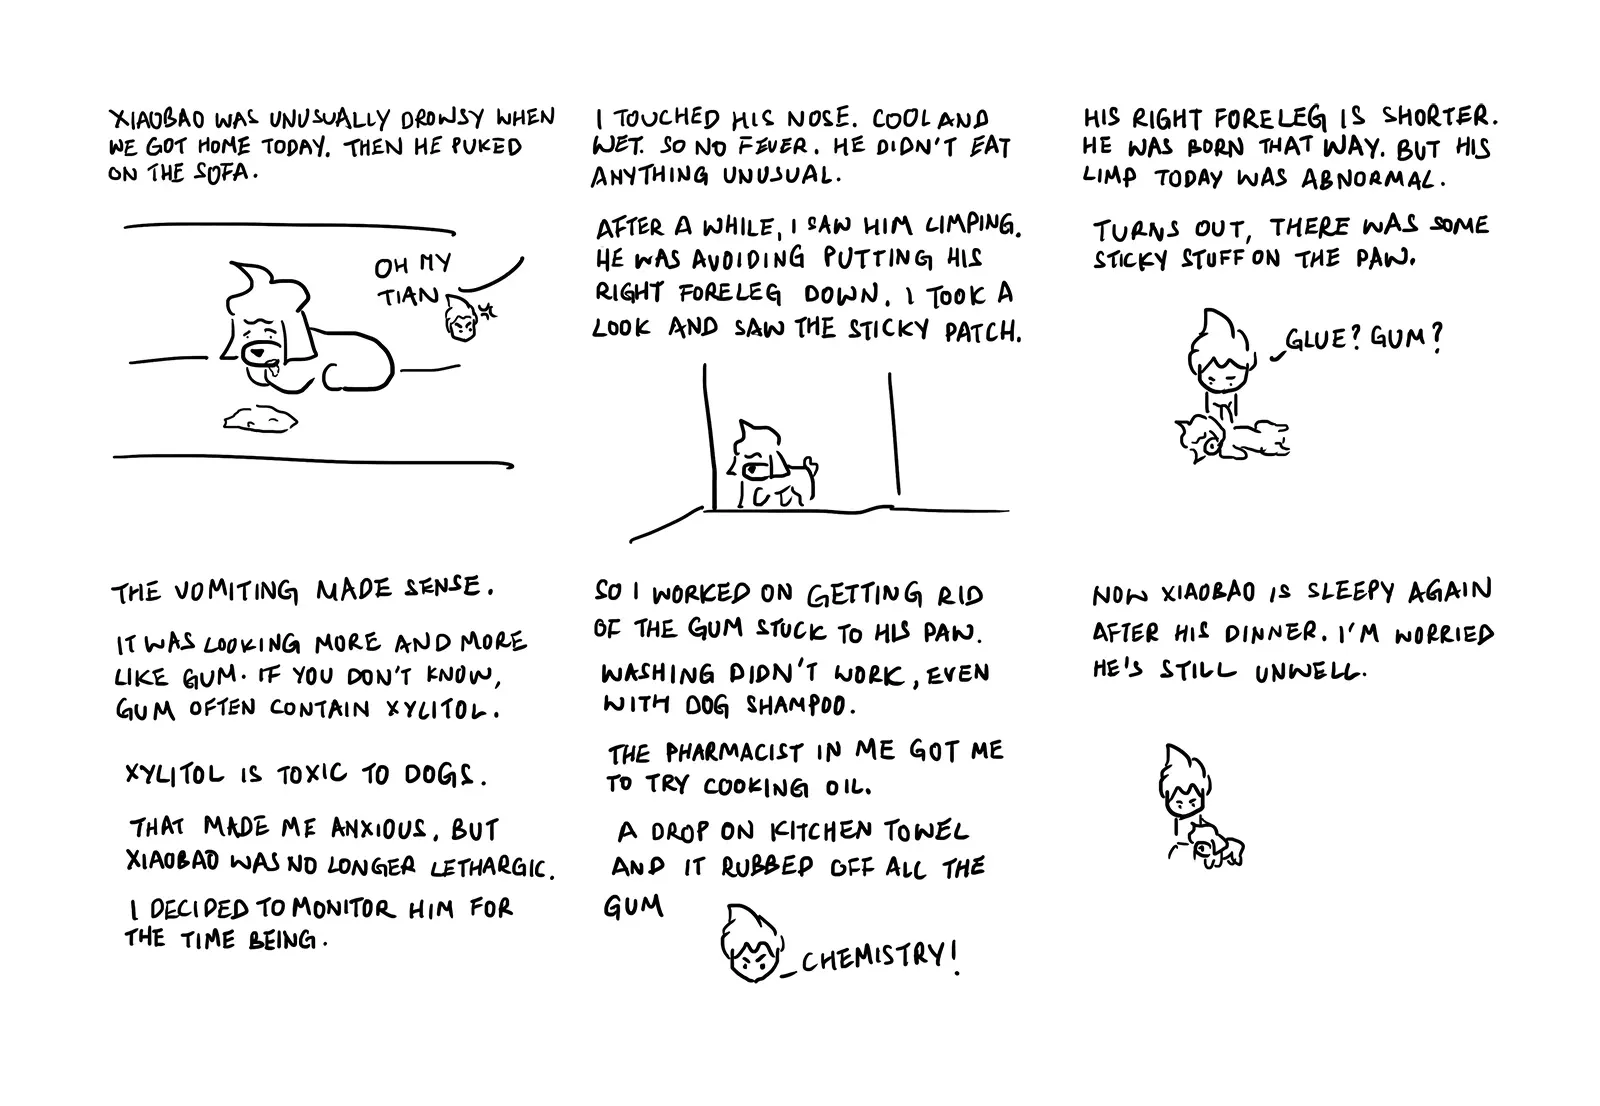 XIAOBAO WAS UNUSUALLY DROWSY WHEN
WE GOT HOME TODAY. THEN HE PUKED
ON THE SOFA.
OH MY
TIAN
I TOUCHED HIS NOSE. COOL AND
WET. SO NO FEVER. HE DIDN'T EAT
ANYTHING UNUSUAL.
AFTER A WHILE, I SAW HIM LIMPING.
HE WAS AVOIDING PUTTING HIS
RIGHT FORELEG DOWN. I TOOK A
LOOK AND SAW THE STICKY PATCH.
HIS RIGHT FORELEG IS SHORTER.
HE WAS BORN THAT WAY. BUT HIS
LIMP TODAY WAS ABNORMAL.
TURNS OUT, THERE WAS SOME
STICKY STUFF ON THE PAW.
GLUE? GUM?
THE VOMITING MADE SENSE.
IT WAS LOOKING MORE AND MORE
LIKE GUM. IF YOU DON'T KNOW,
GUM OFTEN CONTAIN XYLITOL.
XYLITOL IS TOXIC TO DOGS.
THAT MADE ME ANXIOUS. BUT
XIAOBAO WAS NO LONGER LETHARGIC.
I DECIDED TO MONITOR HIM FOR
THE TIME BEING.
SO I WORKED ON GETTING RID
OF THE GUM STUCK TO HIS PAW.
WASHING DIDN'T WORK, EVEN
WITH DOG SHAMPOO.
THE PHARMACIST IN ME GOT ME
TO TRY COOKING OIL.
A DROP ON KITCHEN TOWEL
AND IT RUBBED OFF ALL THE
GUM
CHEMISTRY!
NOW XIAOBAO IS SLEEPY AGAIN
AFTER HIS DINNER. I'M WORRIED
HE'S STILL UNWELL.